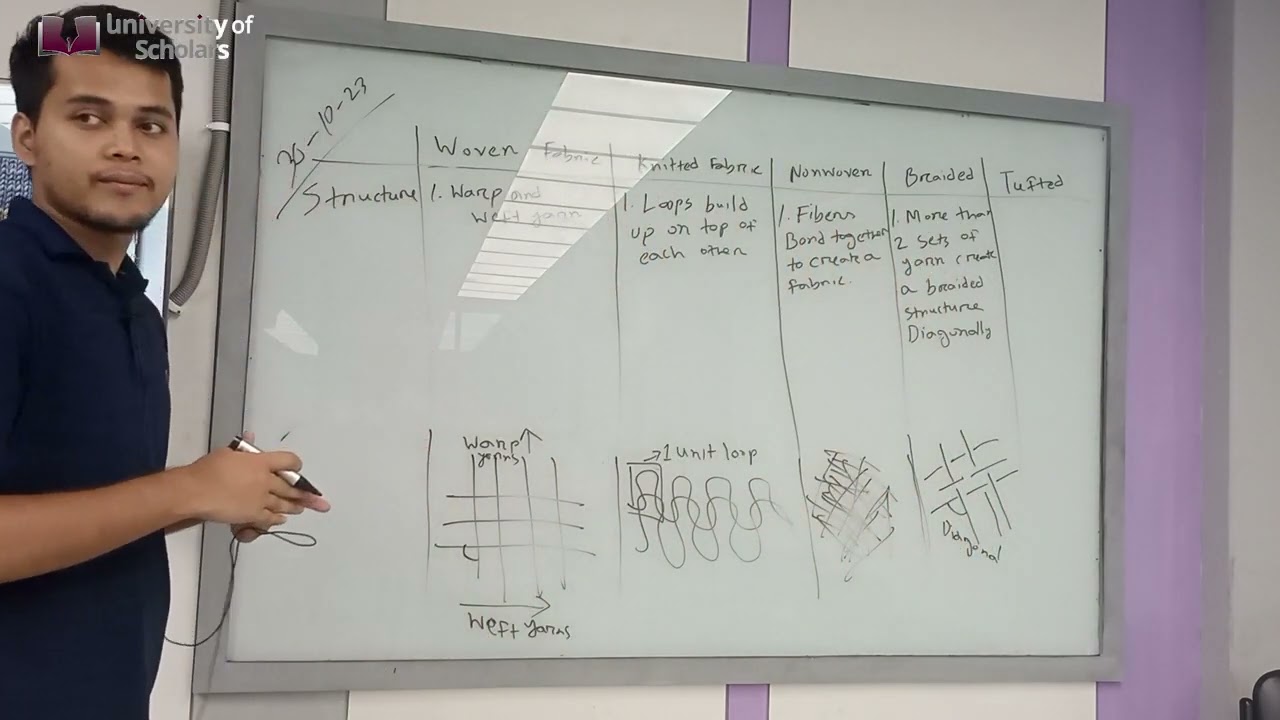 University of
Scholars
-10-23
Woven Fabric
Knitted Fabric
Nonwoven
Braided
Tufted
Structure
1. Warp and
Weft yarn
1. Loops build
up on top of
each other
1. Fibers
Bond together
to create a
fabric.
1. More than
2 sets of
yarn create
a braided
structure
Diagonally
Warp
yarns
Weft yarns
1 unit loop
Diagonal